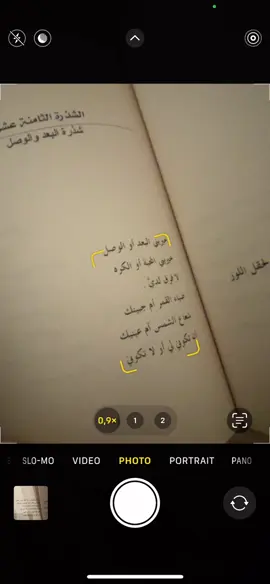 الشذرة الثامنة عشر
شذرة البعد والوصل
البعد أو الوصل
أو الكره
لا فرق لديّ .
ضياء القمر أم جبينك
شعاع الشمس أم عينيك
أن تكوني لي أو لا تكوني
حقل اللوز
0,9×
1
2
SLO-MO
VIDEO
PHOTO
PORTRAIT
PANO